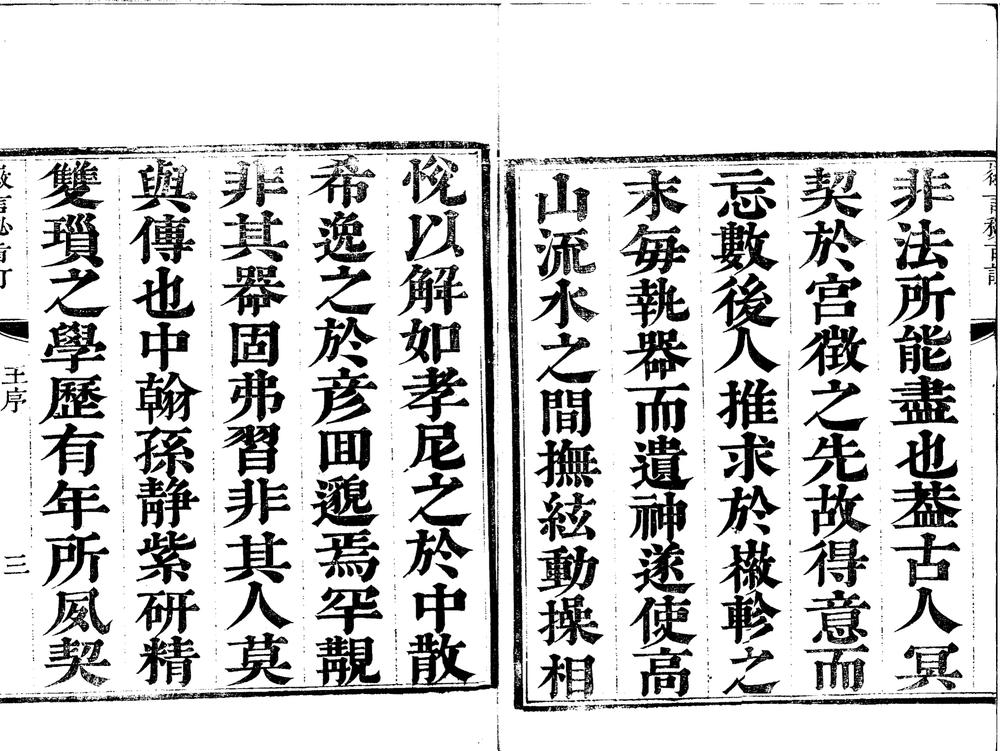 非法所能盡也葢古人冥
契於宮徵之先故得意而
忘數後人推求於檄軫之
末每執器而遺神遂使高
山流水之間撫絃動操相
悅以解如孝尼之於中散
希逸之於彥回邈焉罕覯
非其器固弗習非其人莫
與傳也中翰孫靜紫研精
雙瑣之學歷有年所夙契
王序
三